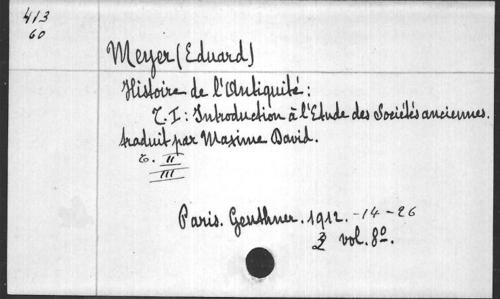 413
60
Meyer (Eduard)
Histoire de l'Antiquité :
T. I : Introduction à l'Etude des Sociétés anciennes.
traduit par Maxime David.
T. II
III
Paris. Geuthner. 1912. -14 -26
3 vol. 8º.